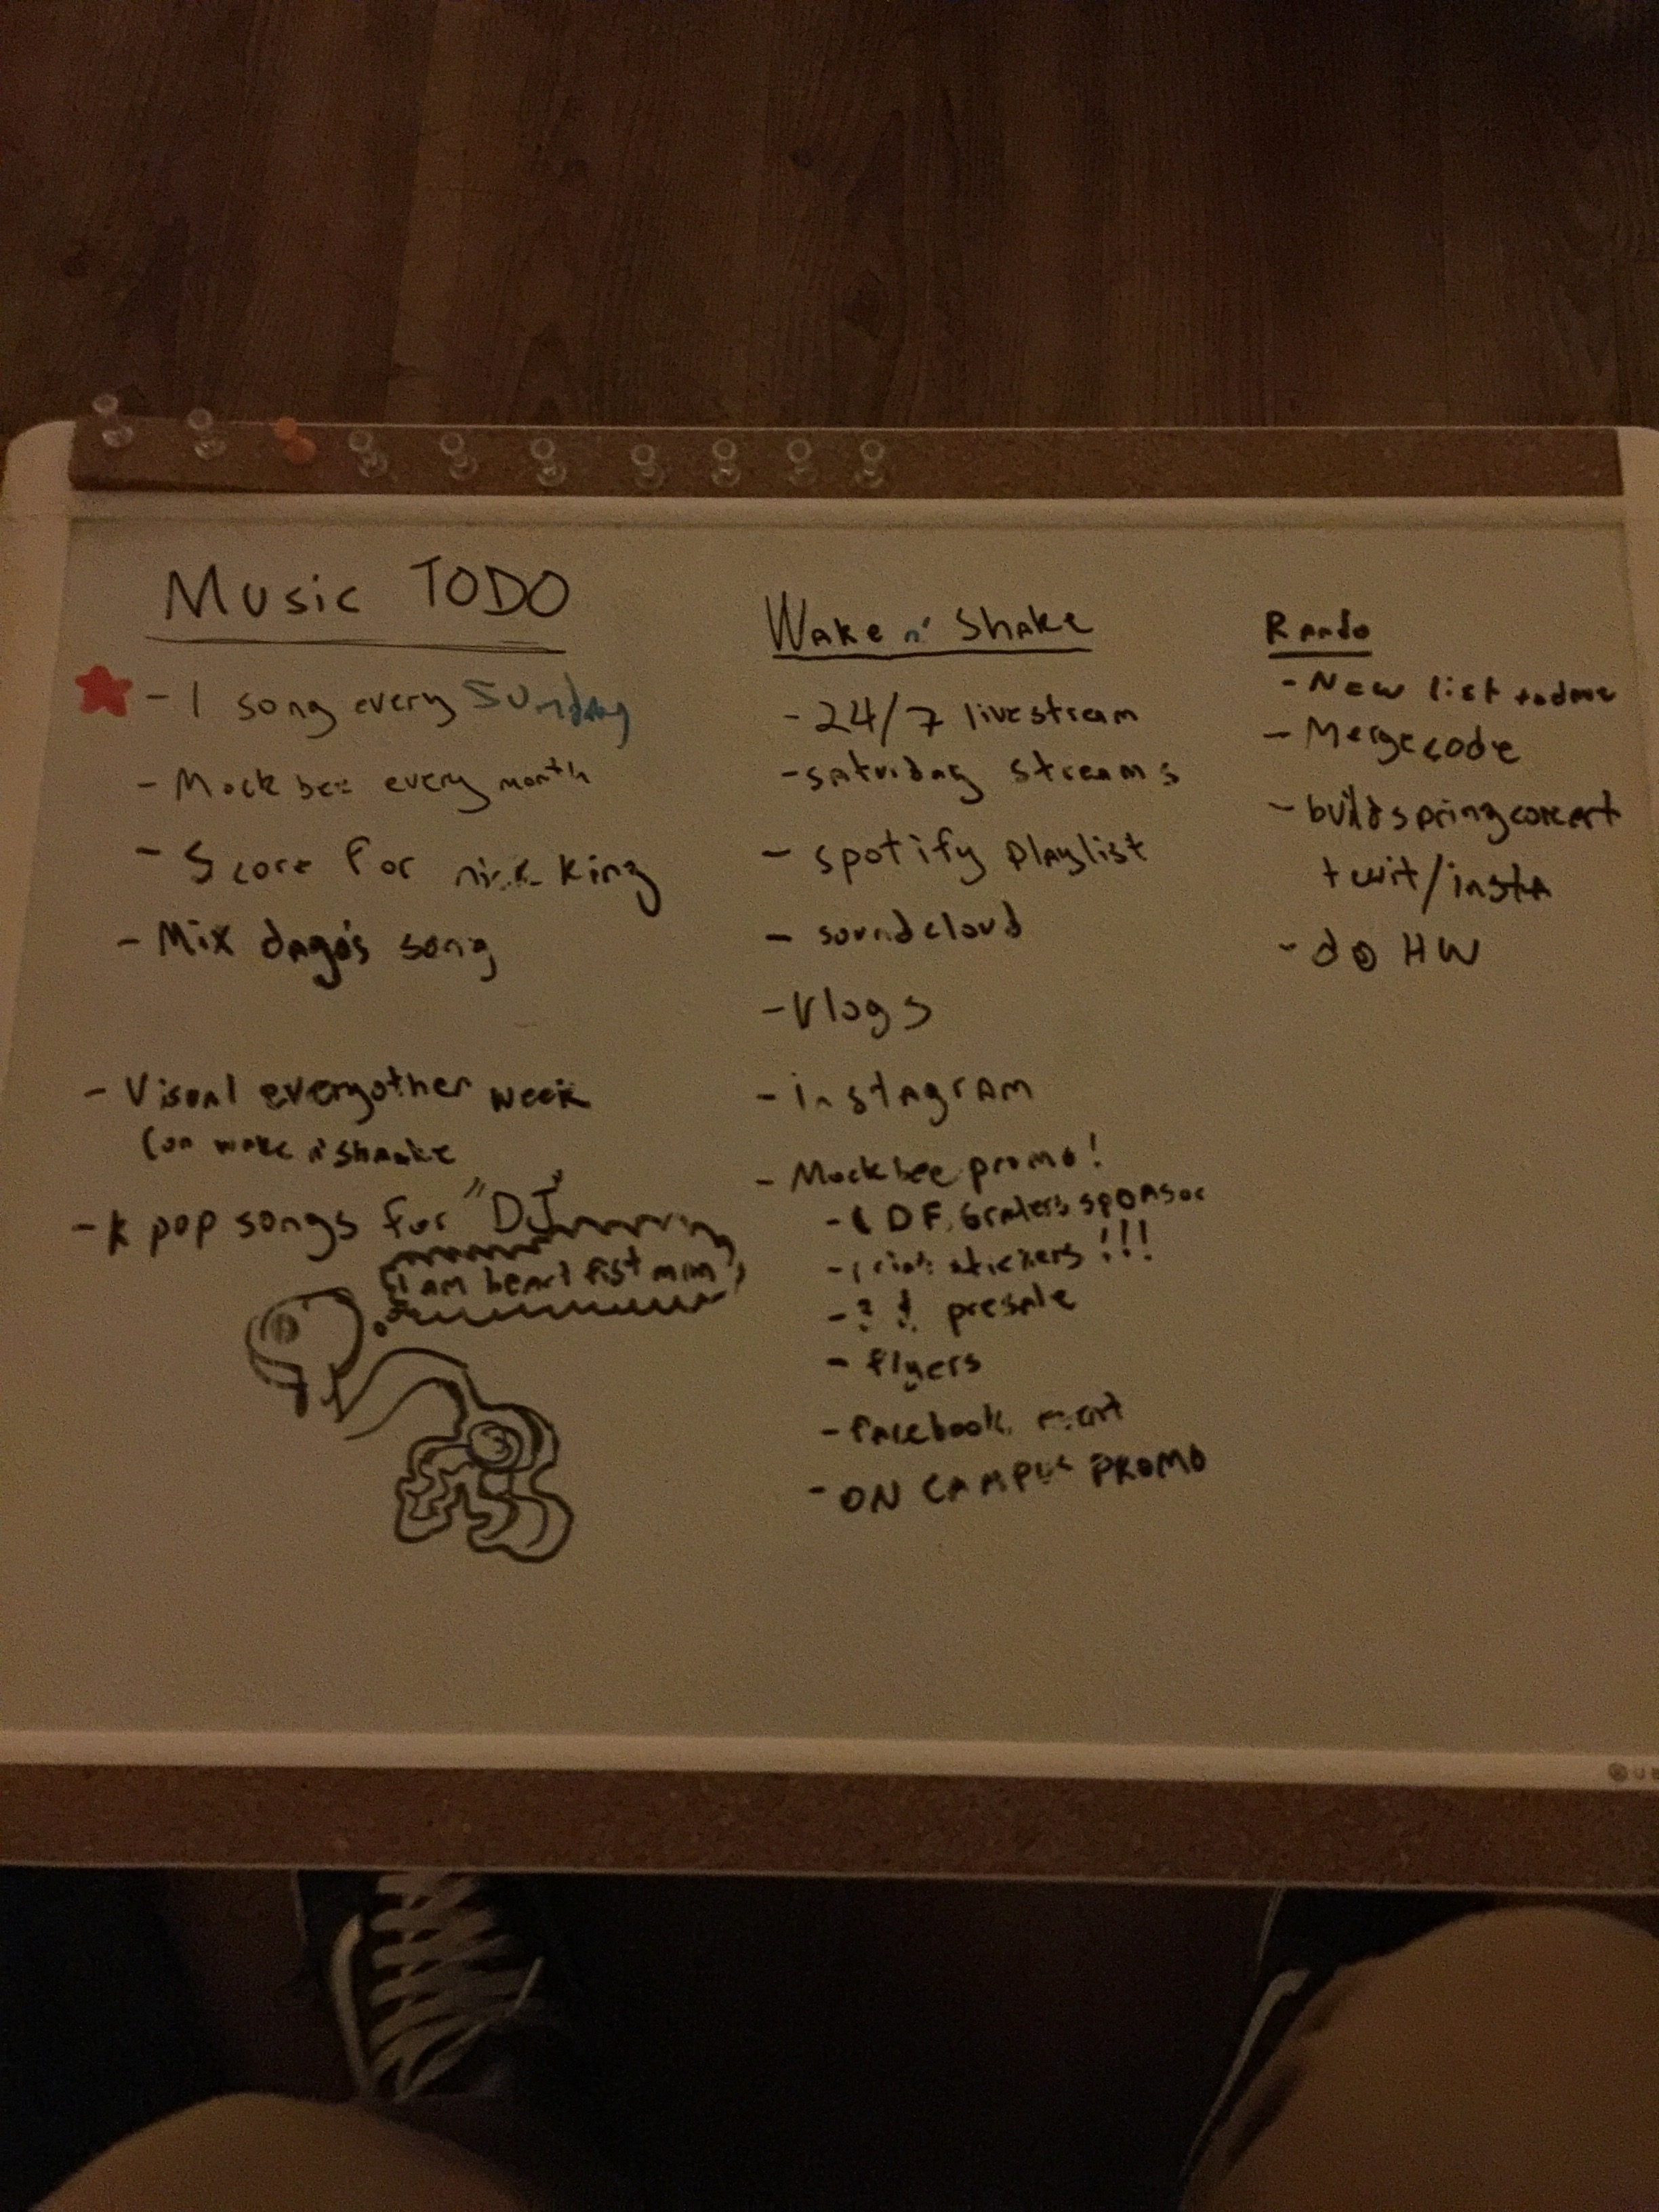 Music TODO
- 1 song every Sunday
- Mockbee every month
- Score for nick king
- Mix dago's song
- Visual everyother week
(on wake n' shake
- k pop songs for "DJ"
I am beart fist mm
Wake n' Shake
- 24/7 livestream
- saturday streams
- spotify playlist
- soundcloud
- Vlogs
- instagram
- Mockbee promo!
- DF, Graters sponsor
- stickers !!!
- ? ! presale
- flyers
- facebook event
- ON CAMPUS PROMO
Rando
- New list
- Merge code
- build spring concert
twit/insta
- do HW